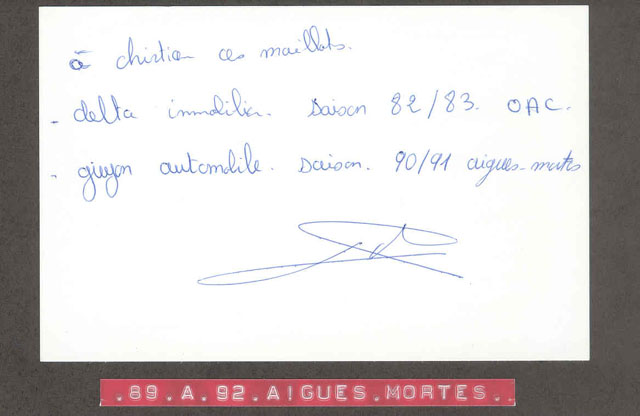 à christian ces maillots.
- delta immobilier. saison 82/83. OAC.
- guyon automobile. saison. 90/91 aigues-mortes
.89.A.92.AIGUES.MORTES.